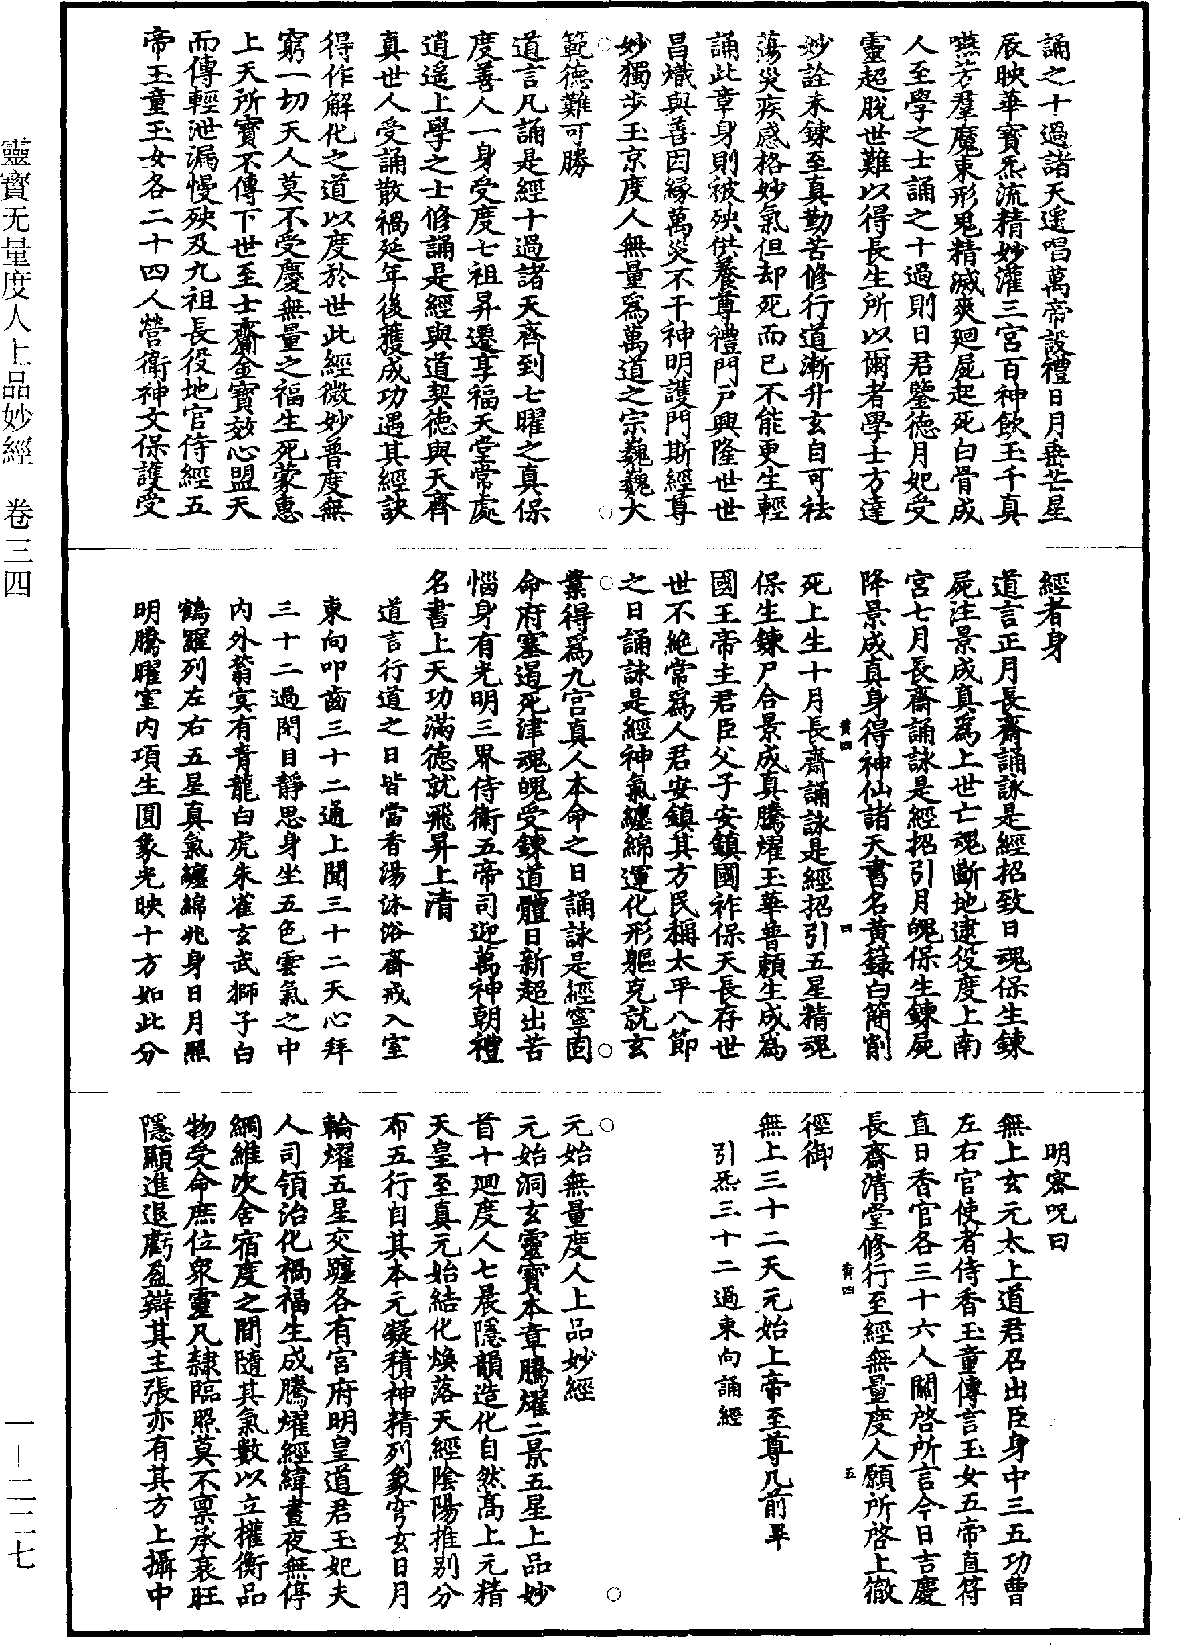 誦之十過諸天遙唱萬帝設禮日月垂芒星
辰映華寶炁流精妙灌三宮百神飲玉千真
嚥芳羣魔束形鬼精滅爽廻屍起死白骨成
人至學之士誦之十過則日君鑒德月妃受
靈超脫世難以得長生所以爾者學士方達
妙詮未鍊至真勤苦修行道漸升玄自可祛
蕩災疾感格妙氣但却死而已不能更生輕
誦此章身則被殃供養尊禮門戶興隆世世
昌熾與善因緣萬災不干神明護門斯經尊
妙獨步玉京度人無量為萬道之宗巍巍大
範德難可勝
道言凡誦是經十過諸天齊到七曜之真保
度善人一身受度七祖昇遷享福天堂常處
逍遙上學之士修誦是經與道契德與天齊
真世人受誦散禍延年後獲成功遇其經訣
得作解化之道以度於世此經微妙普度無
窮一切天人莫不受慶無量之福生死蒙惠
上天所寶不傳下世至士齎金寶效心盟天
而傳輕泄漏慢殃及九祖長役地官侍經五
帝玉童玉女各二十四人營衛神文保護受
經者身
道言正月長齋誦詠是經招致日魂保生鍊
屍注景成真為上世亡魂斷地逮役度上南
宮七月長齋誦詠是經招引月魄保生鍊屍
降景成真身得神仙諸天書名黃籙白簡削
死上生十月長齋誦詠是經招引五星精魂
保生鍊尸合景成真騰耀玉華普賴生成為
國王帝主君臣父子安鎮國祚保天長存世
世不絕常為人君安鎮其方民稱太平八節
之日誦詠是經神氣纏綿運化形軀克就玄
業得為九宮真人本命之日誦詠是經寧固
命府塞遏死津魂魄受鍊道體日新超出苦
惱身有光明三界侍衛五帝司迎萬神朝禮
名書上天功滿德就飛昇上清
道言行道之日皆當香湯沐浴齋戒入室
東向叩齒三十二通上聞三十二天心拜
三十二過閉目靜思身坐五色雲氣之中
內外蓊冥有青龍白虎朱雀玄武獅子白
鶴羅列左右五星真氣纏綿兆身日月照
明騰曜室內項生圓象光映十方如此分
明密呪曰
無上玄元太上道君召出臣身中三五功曹
左右官使者侍香玉童傳言玉女五帝直符
直日香官各三十六人關啓所言今日吉慶
長齋清堂修行至經無量度人願所啓上徹
徑御
無上三十二天元始上帝至尊几前畢
引炁三十二過東向誦經
元始無量度人上品妙經
元始洞玄靈寶本章騰耀二景五星上品妙
首十廻度人七晨隱韻造化自然高上元精
天皇至真元始結化煥落天經陰陽推別分
布五行自其本元凝積神精列象穹玄日月
輪耀五星交躔各有宮府明皇道君玉妃夫
人司領治化禍福生成騰耀經緯晝夜無停
綱維次舍宿度之間隨其氣數以立權衡品
物受命庶位眾靈凡隸臨照莫不稟承衰旺
隱顯進退虧盈辯其主張亦有其方上攝中
靈寶无量度人上品妙經 卷三四
一—二二七